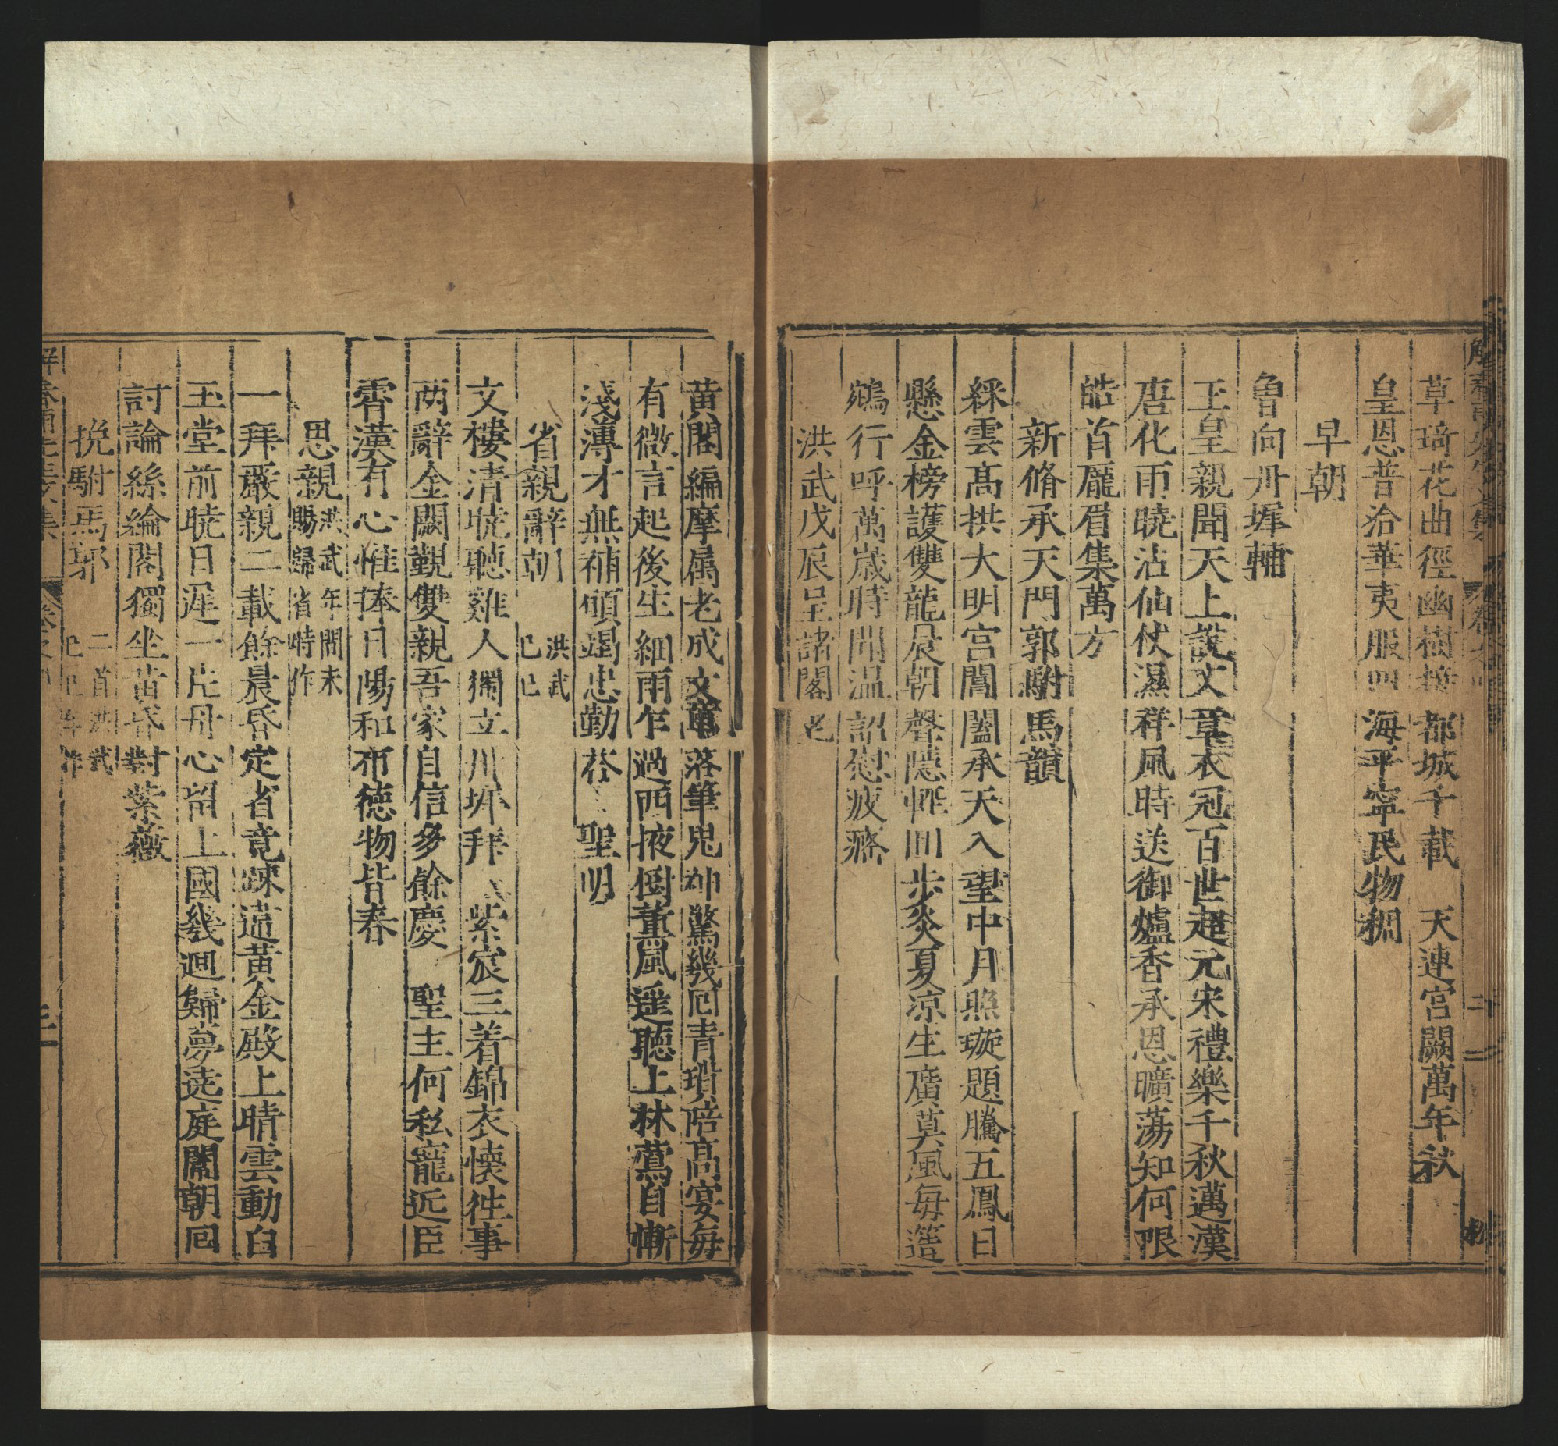 草琦花曲徑幽樹接都城千載　天連宮闕萬年秋
皇恩普洽華夷服四海平寧民物稠
早朝
魯向丹墀輔
玉皇親聞天上說文章衣冠百世超元宋禮樂千秋邁漢
唐化雨曉沾仙仗濕祥風時送御爐香承恩曠蕩知何限
皓首龐眉集萬方
新脩承天門郭駙馬韻
綵雲高拱大明宮閶闔承天入望中月照璇題騰五鳳日
懸金榜護雙龍晨朝聲隱惟回步炎夏涼生廣莫風每簉
鵷行呼萬歲時聞溫詔慰疲癃
洪武戊辰呈諸閣老
黃閣編摩屬老成文章落筆鬼神驚幾回青瑣陪高宴每
有微言起後生細雨乍過西掖樹薰風遥聽上林鶯自慚
淺薄才無補頌竭忠勤荅　聖明
省親辭朝　洪武己巳
文樓清曉聽雞人獨立丹墀拜　紫宸三着錦衣懷徃事
两辭金闕覲雙親吾家自信多餘慶　聖主何私寵近臣
霄漢有心惟捧日陽和布德物皆春
思親　洪武年間末賜歸省時作
一拜嚴親二載餘晨昏定省竟踈遠黃金殿上晴雲動白
玉堂前曉日遲一片丹心留上國幾迴歸夢遶庭闈朝回
討論絲綸閣獨坐黃昏對紫薇
挽駙馬郭　二首洪武
解春雨先生文集　卷之